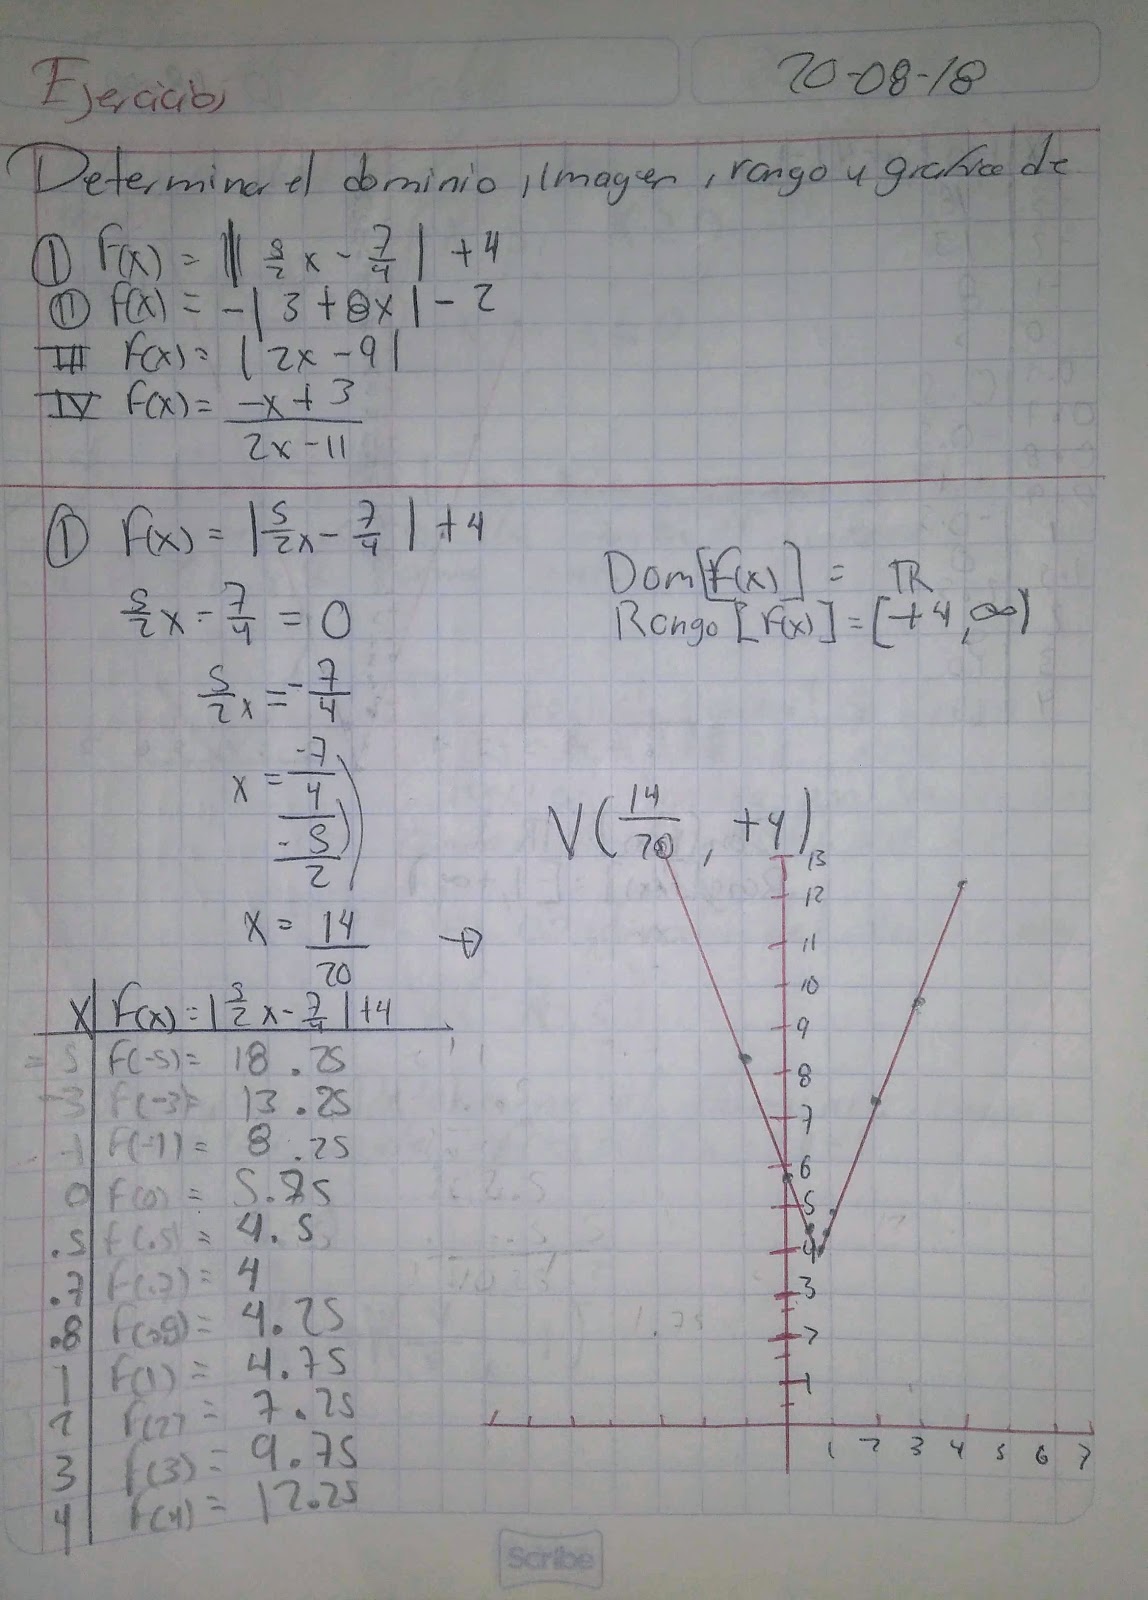 Ejercicios
20-08-18
Determinar el dominio, imagen, rango y grafica de
Ⓘ f(x) = | 5/2 x - 7/4 | + 4
Ⓘ️Ⓘ f(x) = -| 3 + 8x | - 2
III f(x) = | 2x - 9 |
IV f(x) = -x + 3 / 2x - 11
Ⓘ f(x) = | 5/2 x - 7/4 | + 4
5/2 x - 7/4 = 0
5/2 x = - 7/4
x = -7/4 / -5/2
x = 14/20 →
Dom[f(x)] = ℝ
Rango[f(x)] = [+4, ∞)
V(14/20, +4)
x | f(x) = | 5/2 x - 7/4 | + 4
-5 | f(-5) = 18.25
-3 | f(-3) = 13.25
-1 | f(-1) = 8.25
0 | f(0) = 5.75
.5 | f(.5) = 4.5
.7 | f(.7) = 4
.8 | f(.8) = 4.25
1 | f(1) = 4.75
2 | f(2) = 7.25
3 | f(3) = 9.75
4 | f(4) = 12.25
13
12
11
10
9
8
7
6
5
4
3
2
1
1 2 3 4 5 6 7
Scribe